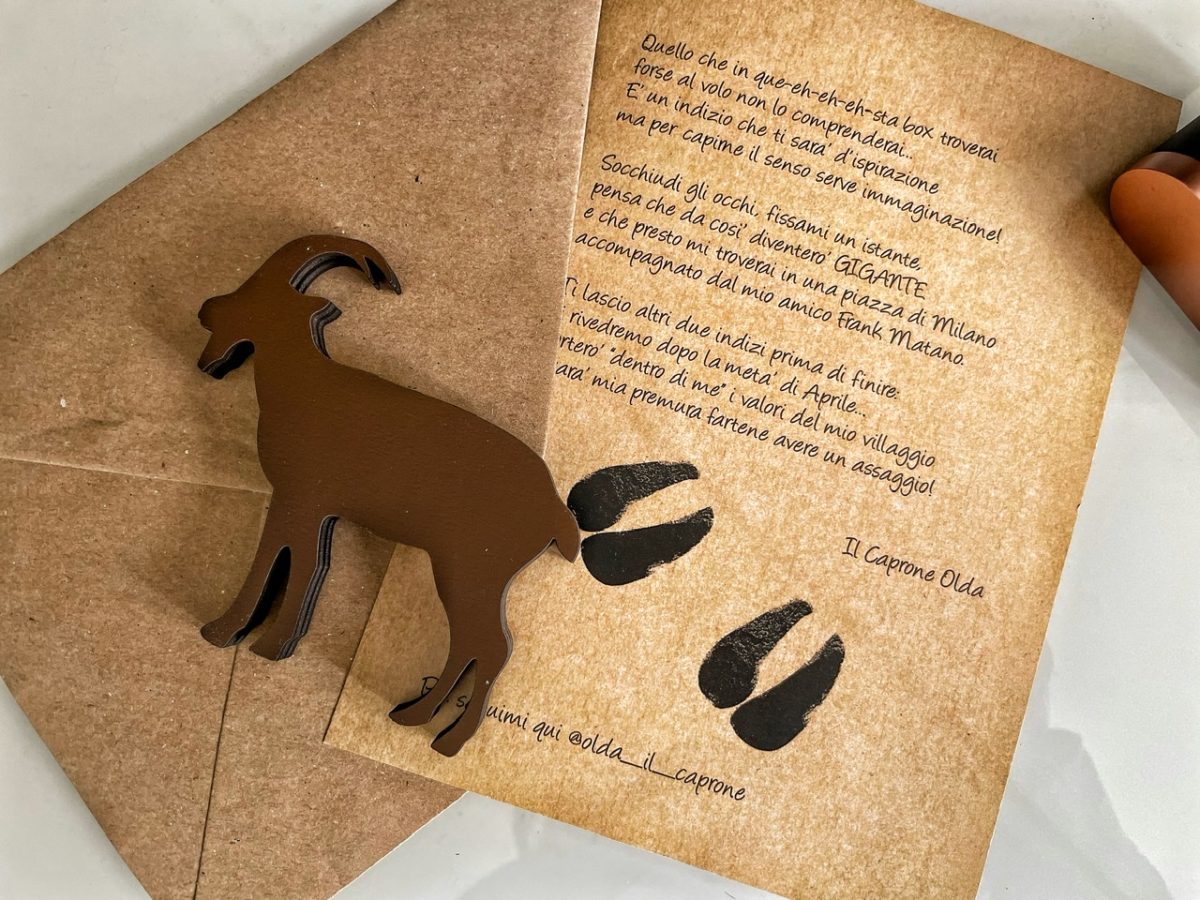 Quello che in que-eh-eh-eh-sta box troverai
forse al volo non lo comprenderai...
E' un indizio che ti sara' d'ispirazione
ma per capirne il senso serve immaginazione!
Socchiudi gli occhi, fissami un istante,
pensa che da cosi' diventero' GIGANTE
e che presto mi troverai in una piazza di Milano
accompagnato dal mio amico Frank Matano.
Ti lascio altri due indizi prima di finire:
rivedremo dopo la meta' di Aprile...
"dentro di me" i valori del mio villaggio
mia premura fartene avere un assaggio!
Il Caprone Olda
qui @olda_il_caprone